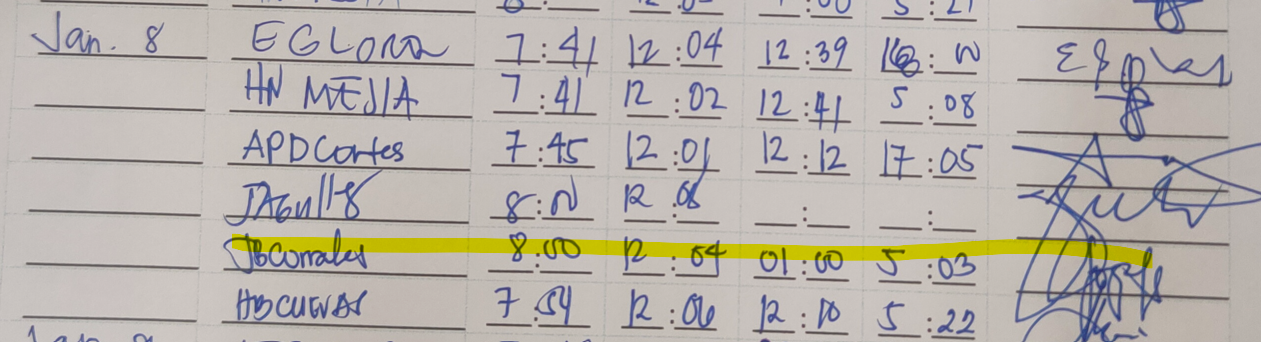 5:21
Jan. 8 EGLORIA 7:41 12:04 12:39
HN MEJIA 7:41 12:02 12:41 5:08
APDCortes 7:45 12:01 12:12 17:05
12:08
JBCorrales 8:00 12:04 01:00 5:03
HBCUEVAS 7:54 12:06 12:10 5:22